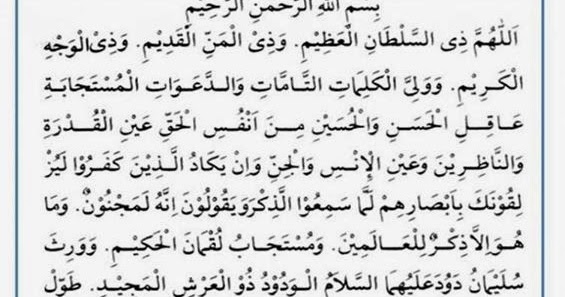 بِسْمِ اللهِ الرَّحْمٰنِ الرَّحِيْمِ
اَللّٰهُمَّ ذِى السُّلْطَانِ الْعَظِيْمِ. وَذِى الْمَنِّ الْقَدِيْمِ. وَذِى الْوَجْهِ
الْكَرِيْمِ. وَوَلِيَّ الْكَلِمَاتِ التَّامَّاتِ وَالدَّعَوَاتِ الْمُسْتَجَابَةِ
عَاقِلِ الْحَسَنِ وَالْحُسَيْنِ مِنْ اَنْفُسِ الْحَقِّ عَيْنِ الْقُدْرَةِ
وَالنَّاظِرِيْنَ وَعَيْنِ الْاِنْسِ وَالْجِنِّ وَاِنْ يَكَادُ الَّذِيْنَ كَفَرُوْا لَيُزْ
لِقُوْنَكَ بِاَبْصَارِهِمْ لَمَّا سَمِعُوْا الذِّكْرَ وَيَقُوْلُوْنَ اِنَّهُ لَمَجْنُوْنٌ. وَمَا
هُوَ اِلَّا ذِكْرٌ لِلْعَالَمِيْنَ. وَمُسْتَجَابُ لُقْمَانَ الْحَكِيْمِ. وَوَرِثَ
سُلَيْمَانُ دَوُدَ عَلَيْهِمَا السَّلَامُ الْوَدُوْدُ ذُو الْعَرْشِ الْمَجِيْدِ. طَوِّلْ